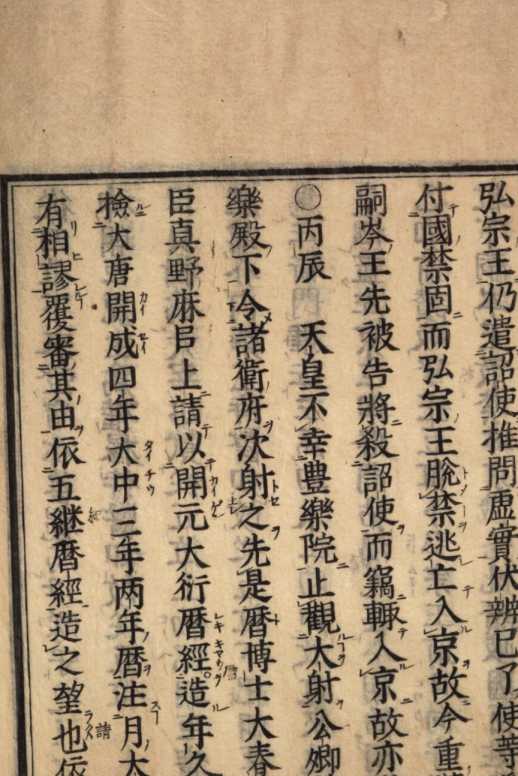 弘宗王仍遣詔使推問虛實伏辨已了使等
付國禁固而弘宗王脫禁逃亡入京故今重
嗣岑王先被告將殺詔使而竊輙入京故亦
〇丙辰 天皇不幸豊樂院止觀大射公卿
樂殿下令諸衛府次射之先是曆博士大春
臣真野麻呂上請以開元大衍曆經造年久
檢大唐開成四年大中三年两年曆注月大
有相謬覆審其由依五継曆經造之望也依